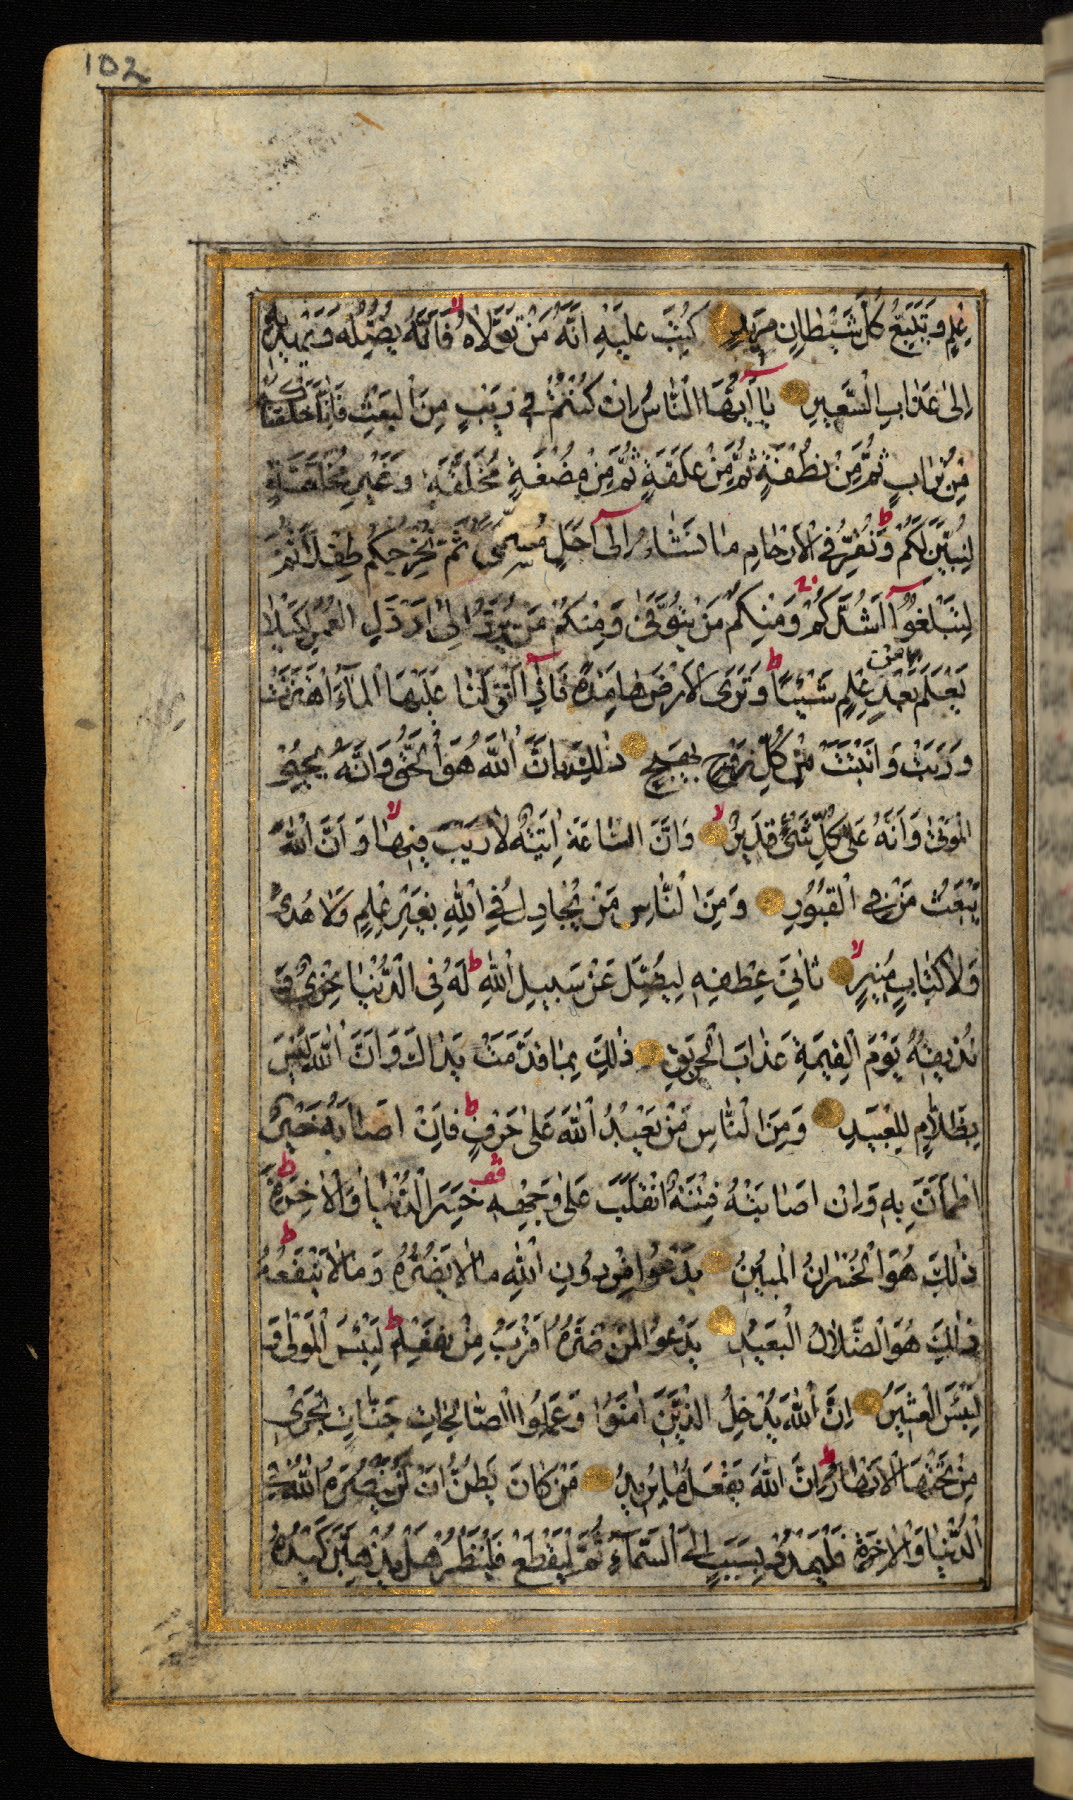 102
عِلْمٍ وَيَتَّبِعُ كُلَّ شَيْطَانٍ مَرِيدٍ كُتِبَ عَلَيْهِ اَنَّهُ مَنْ تَوَلَّاهُ فَاَنَّهُ يُضِلُّهُ وَيَهْدِيهِ
اِلٰى عَذَابِ السَّعِيرِ يَا اَيُّهَا النَّاسُ اِنْ كُنْتُمْ فِي رَيْبٍ مِنَ الْبَعْثِ فَاِنَّا خَلَقْنَاكُمْ
مِنْ تُرَابٍ ثُمَّ مِنْ نُطْفَةٍ ثُمَّ مِنْ عَلَقَةٍ ثُمَّ مِنْ مُضْغَةٍ مُخَلَّقَةٍ وَغَيْرِ مُخَلَّقَةٍ
لِنُبَيِّنَ لَكُمْ ط وَنُقِرُّ فِي الْاَرْحَامِ مَا نَشَاءُ اِلٰى اَجَلٍ مُسَمًّى ثُمَّ نُخْرِجُكُمْ طِفْلًا ثُمَّ
لِتَبْلُغُوا اَشُدَّكُمْ وَمِنْكُمْ مَنْ يُتَوَفّٰى وَمِنْكُمْ مَنْ يُرَدُّ اِلٰى اَرْذَلِ الْعُمُرِ لِكَيْلَا
يَعْلَمَ مِنْ بَعْدِ عِلْمٍ شَيْئًا ط وَتَرَى الْاَرْضَ هَامِدَةً فَاِذَا اَنْزَلْنَا عَلَيْهَا الْمَاءَ اهْتَزَّتْ
وَرَبَتْ وَاَنْبَتَتْ مِنْ كُلِّ زَوْجٍ بَهِيجٍ ذٰلِكَ بِاَنَّ اللّٰهَ هُوَ الْحَقُّ وَاَنَّهُ يُحْيِي
الْمَوْتٰى وَاَنَّهُ عَلٰى كُلِّ شَيْءٍ قَدِيرٌ لا وَاَنَّ السَّاعَةَ اٰتِيَةٌ لَا رَيْبَ فِيهَا لا وَاَنَّ اللّٰهَ
يَبْعَثُ مَنْ فِي الْقُبُورِ وَمِنَ النَّاسِ مَنْ يُجَادِلُ فِي اللّٰهِ بِغَيْرِ عِلْمٍ وَلَا هُدًى
وَلَا كِتَابٍ مُنِيرٍ لا ثَانِيَ عِطْفِهِ لِيُضِلَّ عَنْ سَبِيلِ اللّٰهِ ط لَهُ فِي الدُّنْيَا خِزْيٌ وَ
نُذِيقُهُ يَوْمَ الْقِيٰمَةِ عَذَابَ الْحَرِيقِ ذٰلِكَ بِمَا قَدَّمَتْ يَدَاكَ وَاَنَّ اللّٰهَ لَيْسَ
بِظَلَّامٍ لِلْعَبِيدِ وَمِنَ النَّاسِ مَنْ يَعْبُدُ اللّٰهَ عَلٰى حَرْفٍ ط فَاِنْ اَصَابَهُ خَيْرٌ
اطْمَاَنَّ بِهِ وَاِنْ اَصَابَتْهُ فِتْنَةٌ انْقَلَبَ عَلٰى وَجْهِهِ قف خَسِرَ الدُّنْيَا وَالْاٰخِرَةَ ط
ذٰلِكَ هُوَ الْخُسْرَانُ الْمُبِينُ يَدْعُوا مِنْ دُونِ اللّٰهِ مَا لَا يَضُرُّهُ وَمَا لَا يَنْفَعُهُ ط
ذٰلِكَ هُوَ الضَّلَالُ الْبَعِيدُ يَدْعُوا لَمَنْ ضَرُّهُ اَقْرَبُ مِنْ نَفْعِهِ ط لَبِئْسَ الْمَوْلٰى وَ
لَبِئْسَ الْعَشِيرُ اِنَّ اللّٰهَ يُدْخِلُ الَّذِينَ اٰمَنُوا وَعَمِلُوا الصَّالِحَاتِ جَنَّاتٍ تَجْرِي
مِنْ تَحْتِهَا الْاَنْهَارُ ط اِنَّ اللّٰهَ يَفْعَلُ مَا يُرِيدُ مَنْ كَانَ يَظُنُّ اَنْ لَنْ يَنْصُرَهُ اللّٰهُ فِي
الدُّنْيَا وَالْاٰخِرَةِ فَلْيَمْدُدْ بِسَبَبٍ اِلَى السَّمَاءِ ثُمَّ لْيَقْطَعْ فَلْيَنْظُرْ هَلْ يُذْهِبَنَّ كَيْدُهُ